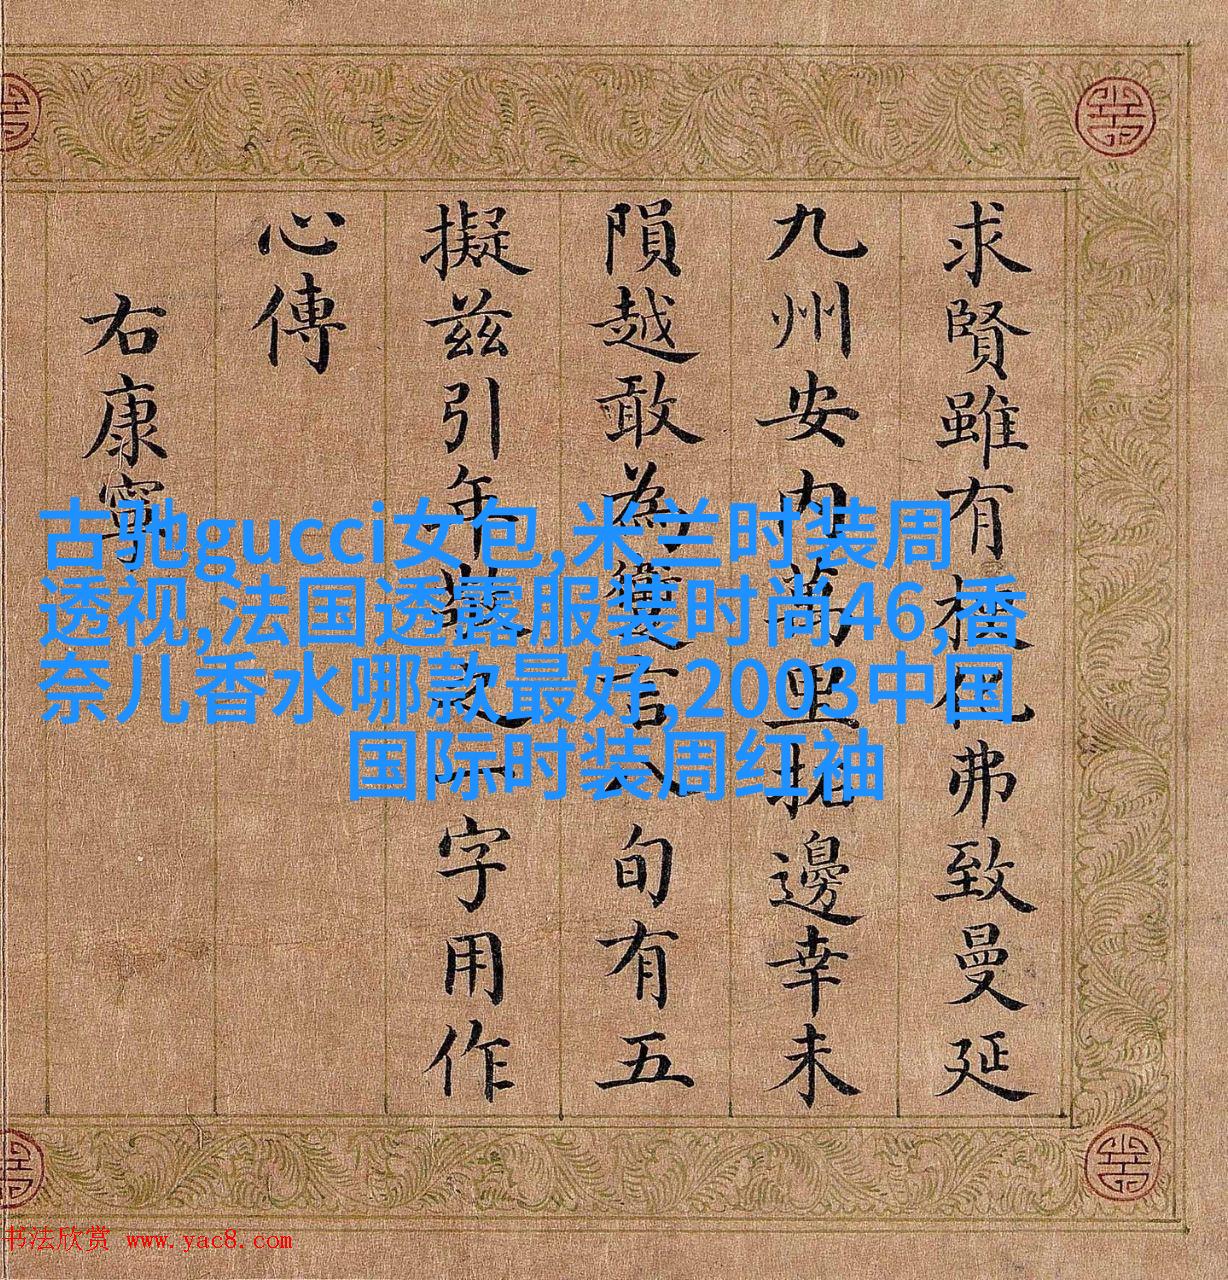 求賢雖有弗致曼延
九州安內萬里邊幸未
隕越敢為言八旬有五
擬兹引年敬之一字用作
心傳
右康寧
古驰gucci女包,米兰时装周
透视,法国透露服装时尚46,香
奈儿香水哪款最好,2003中国
国际时装周红袖
书法欣赏 www.yac8.com